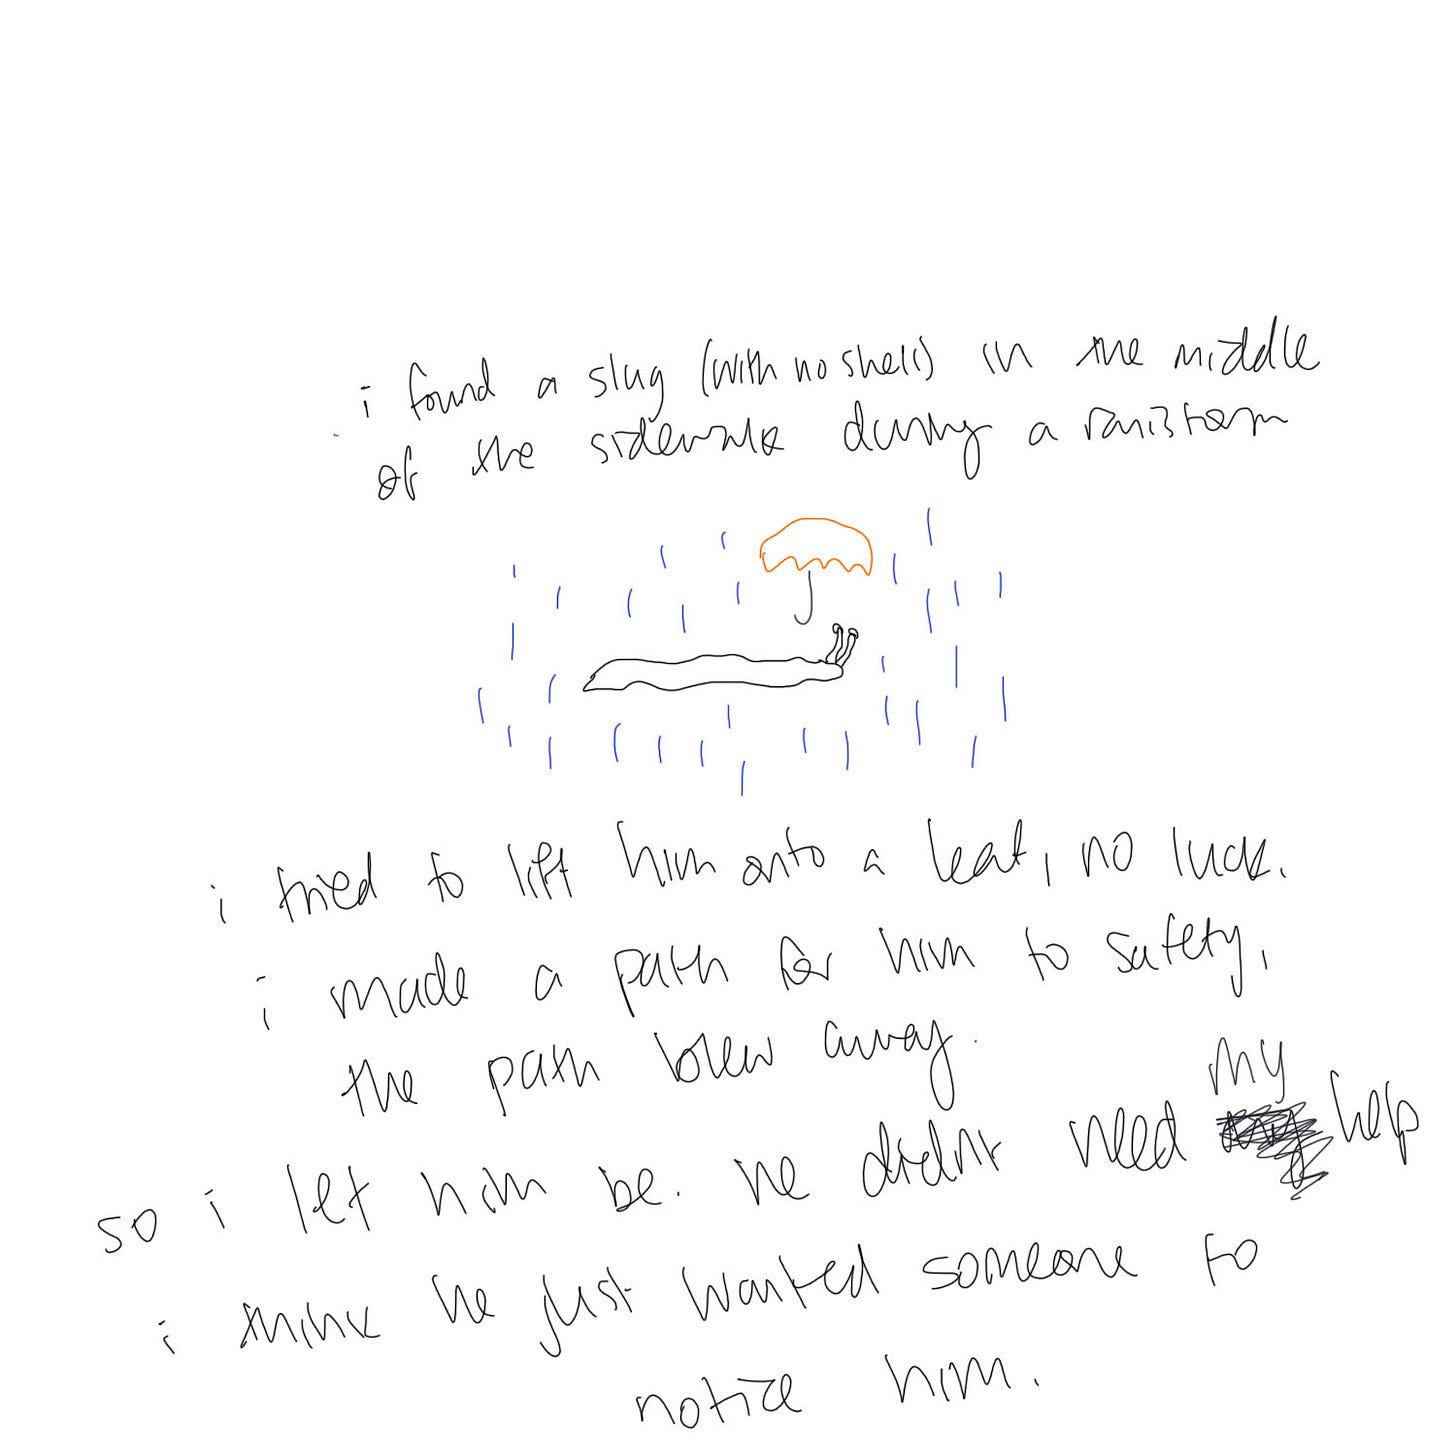 i found a slug (with no shell) in the middle
of the sidewalk during a rainstorm
i tried to lift him onto a leaf, no luck.
i made a path for him to safety,
the path blew away.
so i let him be. he didnt need my help
i think he just wanted someone to
notice him.